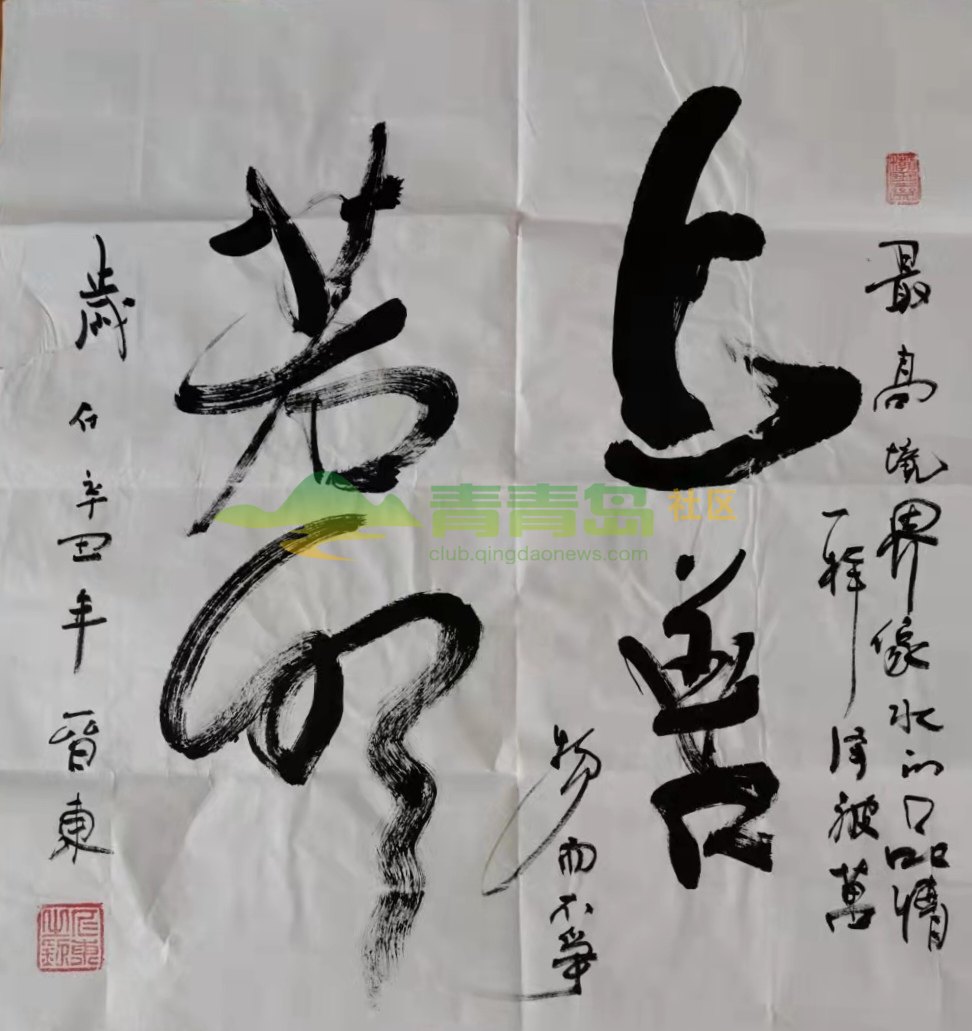 最高境界像水的品情
一样泽被萬
物而不爭
上善
若水
歲在辛丑年晋東
青青岛社区
club.qingdaonews.com